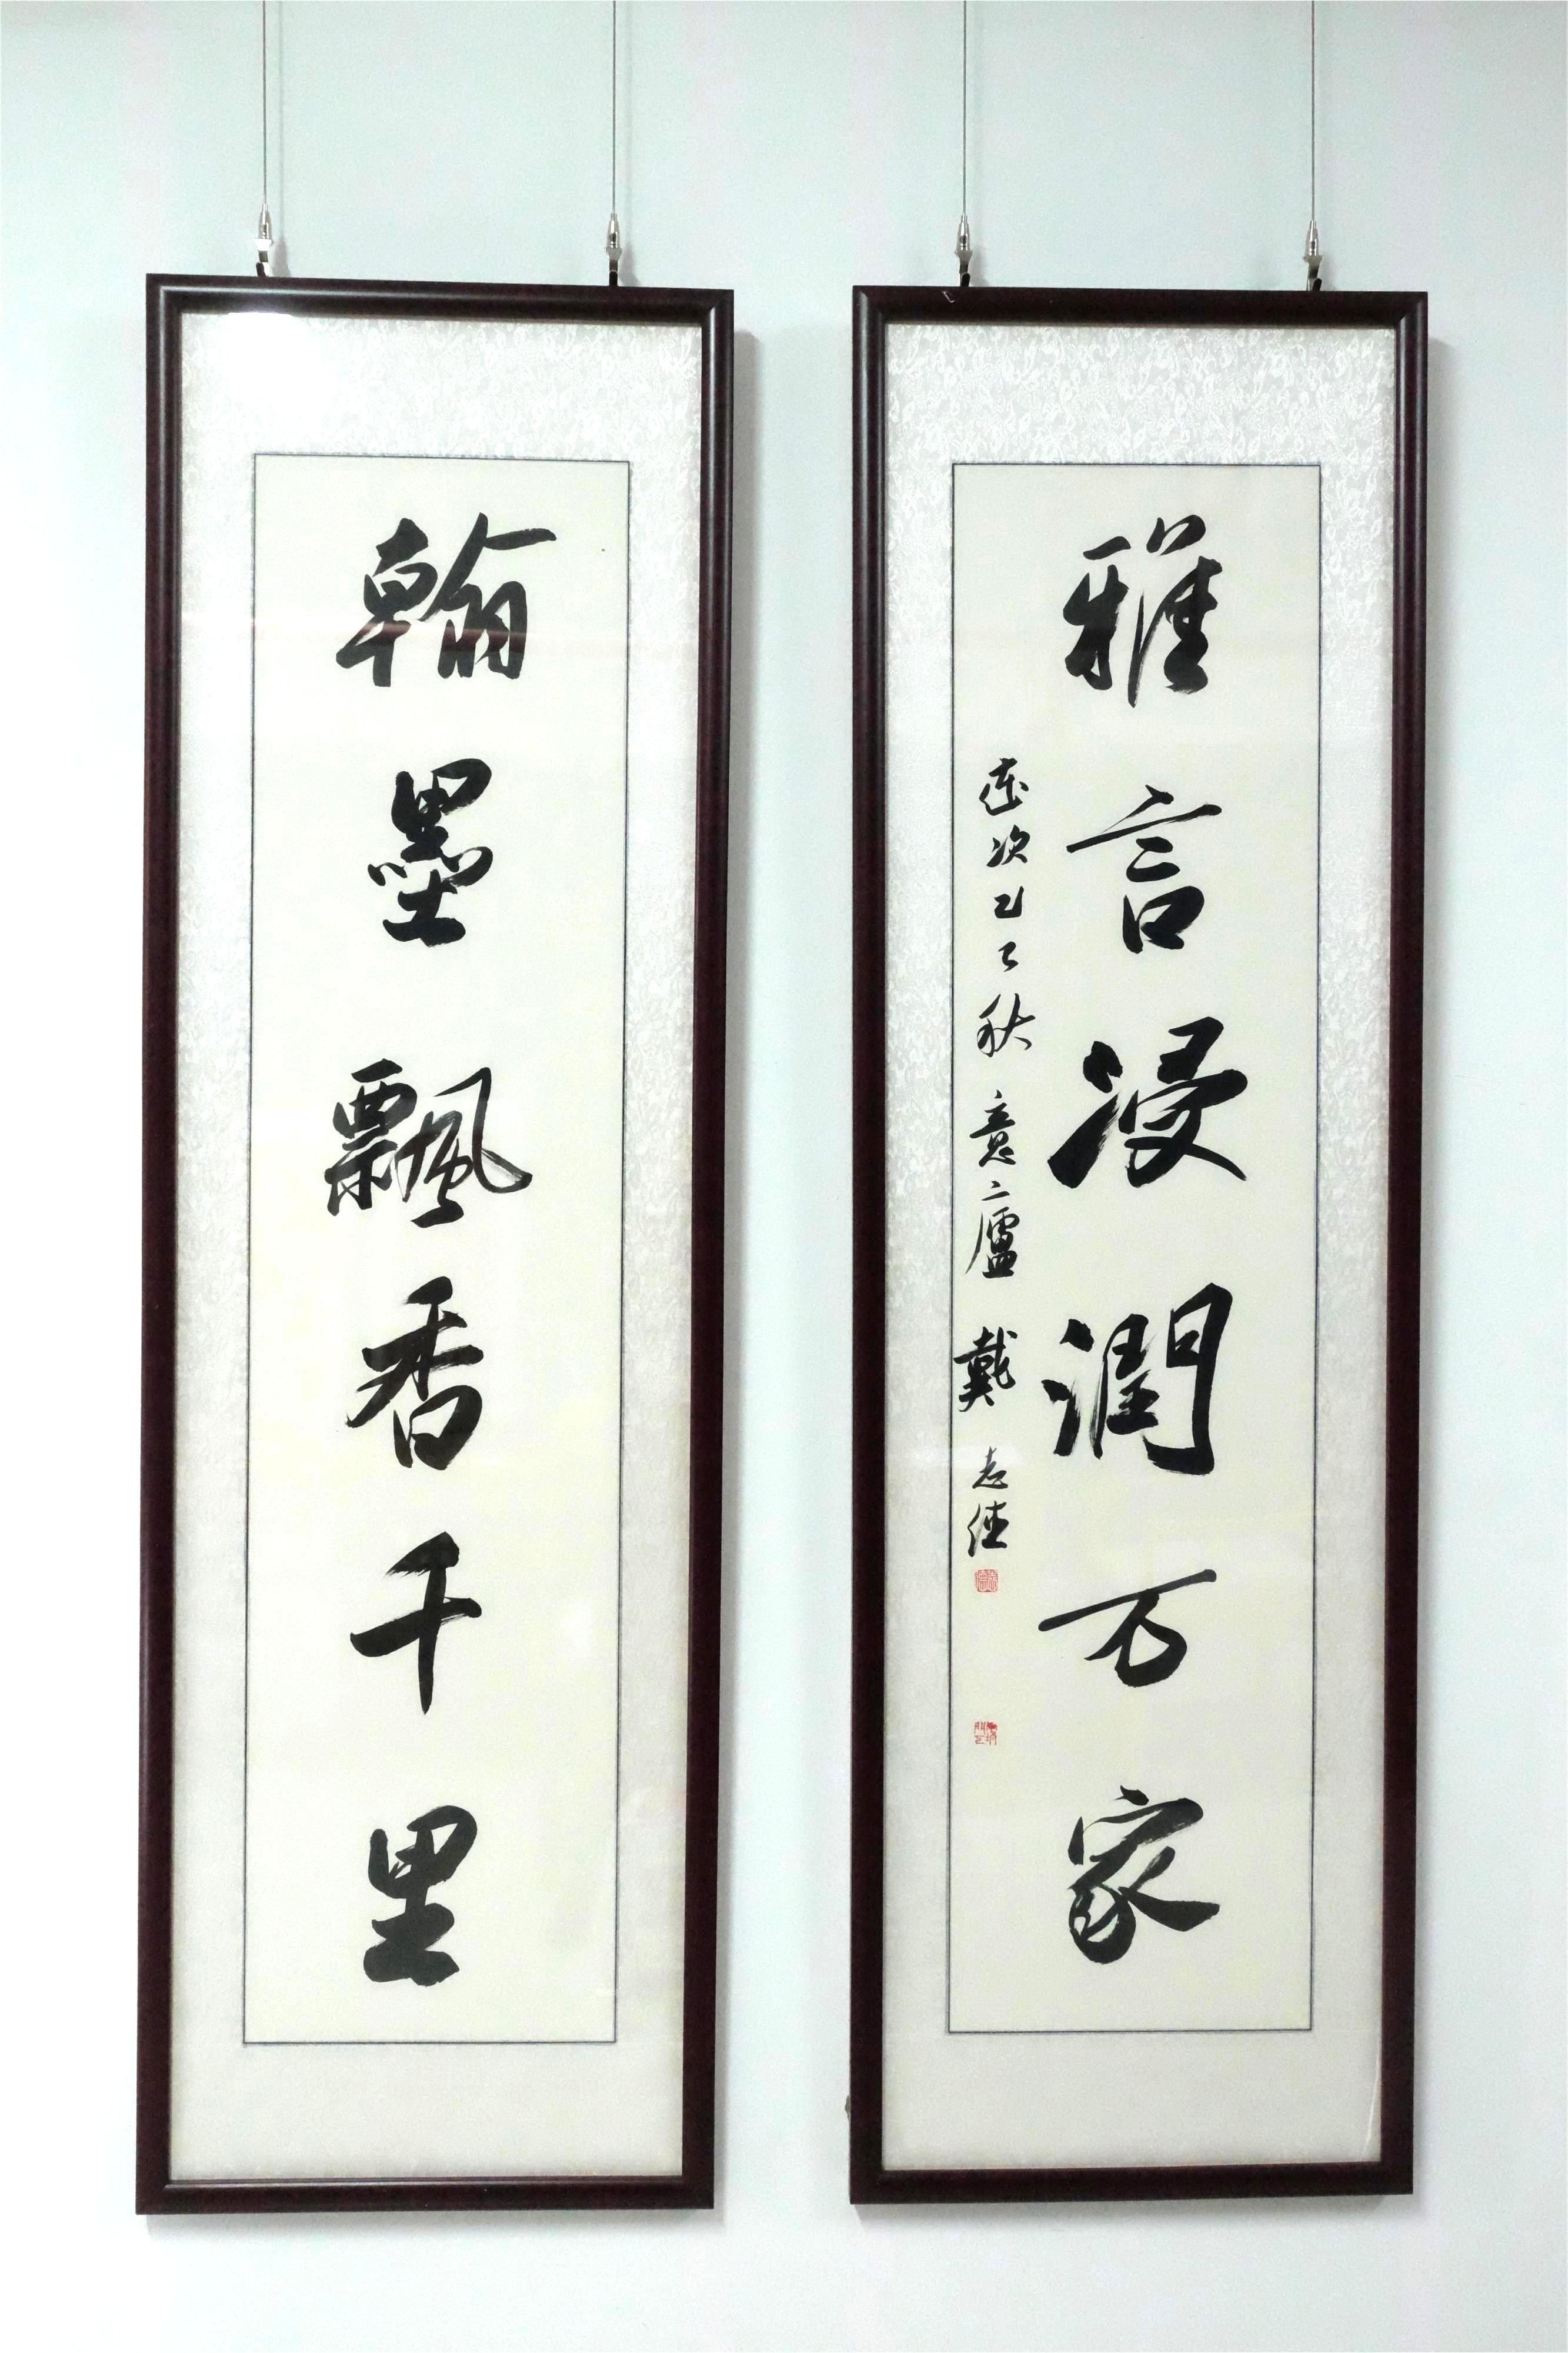 翰墨飄香千里
雅言浸潤万家
歲次乙巳秋意廬戴志偉